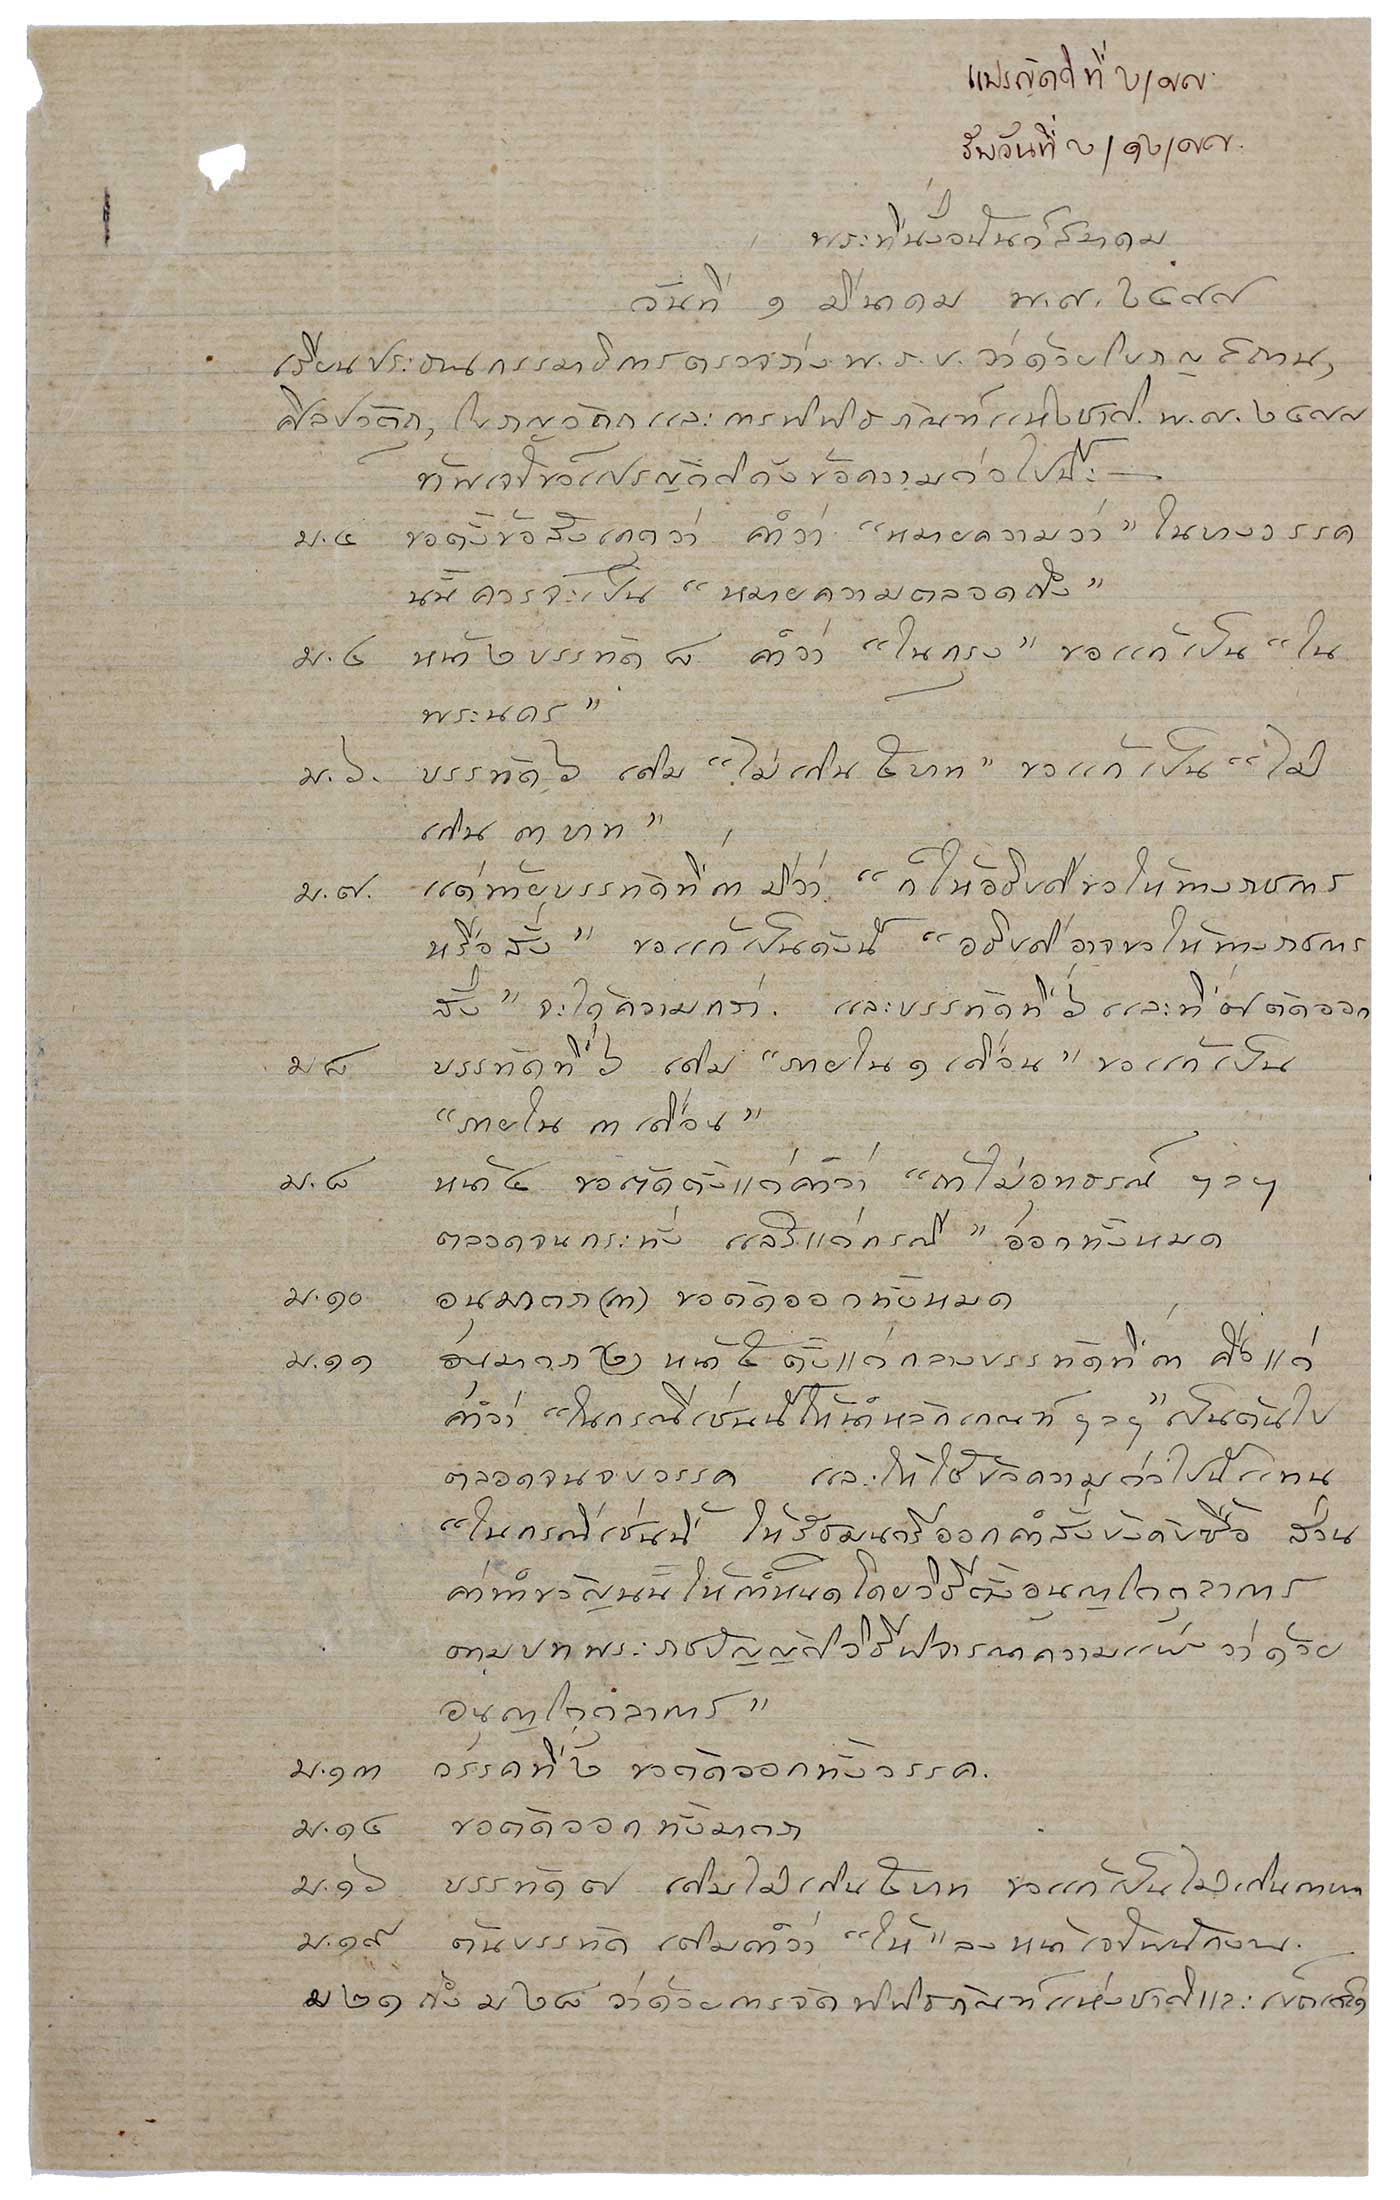 แปรญัตติที่ ๖/๗๗.
รับวันที่ ๖/๑๒/๗๗.
พระที่นั่งอนันต์สมาคม
วันที่ ๑ มีนาคม พ.ศ. ๒๔๗๗
เรียนประธานกรรมาธิการตรวจร่างพ.ร.บ. ว่าด้วยโบราณสถาน,
ศิลปวัตถุ, โบราณวัตถุและการพิพิธภัณฑ์แห่งชาติ. พ.ศ. ๒๔๗๗
ข้าพเจ้าขอแปรญัตติดังข้อความต่อไปนี้:—
ม.๔ ขอตั้งข้อสังเกตว่า คำว่า "หมายความว่า" ในบางวรรค
นั้นควรจะเป็น "หมายความตลอดถึง"
ม.๔ หน้า ๒ บรรทัด ๘ คำว่า "ในกรุง" ขอแก้เป็น "ใน
พระนคร"
ม.๖. บรรทัด ๖ เดิม "ไม่เกิน ๕ บาท" ขอแก้เป็น "ไม่
เกิน ๓ บาท"
ม.๗. แต่ท้ายบรรทัดที่ ๓ มีว่า "ก็ให้อธิบดีขอให้ทางราชการ
หรือสั่ง" ขอแก้เป็นดังนี้ "อธิบดีอาจขอให้ทางราชการ
สั่ง" จะได้ความกว่า. และบรรทัดที่ ๖ และที่ ๗ ตัดออก
ม ๘ บรรทัดที่ ๖ เดิม "ภายใน ๑ เดือน" ขอแก้เป็น
"ภายใน ๓ เดือน"
ม.๘ หน้า ๔ ขอตัดตั้งแต่คำว่า "ถ้าไม่อุทธรณ์ ฯลฯ
ตลอดจนกระทั่ง แล้วแต่กรณี" ออกทั้งหมด
ม.๑๐ อนุมาตรา (๓) ขอตัดออกทั้งหมด
ม.๑๑ อนุมาตรา (๒) หน้า ๕ ตั้งแต่กลางบรรทัดที่ ๓ คือแต่
คำว่า "ในกรณีเช่นนี้ให้นำหลักเกณฑ์ ฯลฯ" เป็นต้นไป
ตลอดจนจบวรรค และให้ใช้ข้อความต่อไปนี้แทน
"ในกรณีเช่นนี้ ให้รัฐมนตรีออกคำสั่งบังคับซื้อ ส่วน
ค่าทำขวัญนั้นให้กำหนดโดยวิธีตั้งอนุญาโตตุลาการ
ตามบทพระราชบัญญัติวิธีพิจารณาความแพ่ง ว่าด้วย
อนุญาโตตุลาการ"
ม.๑๓ วรรคที่ ๒ ขอตัดออกทั้งวรรค.
ม.๑๔ ขอตัดออกทั้งมาตรา
ม.๑๖ บรรทัด ๗ เดิมไม่เกิน ๕ บาท ขอแก้เป็นไม่เกิน ๓ บาท
ม.๑๙ ต้นบรรทัด เติมคำว่า "ให้" ลงหน้าเจ้าพนักงาน.
ม ๒๑ ถึง ม ๒๘ ว่าด้วยการจัดพิพิธภัณฑ์แห่งชาติและ